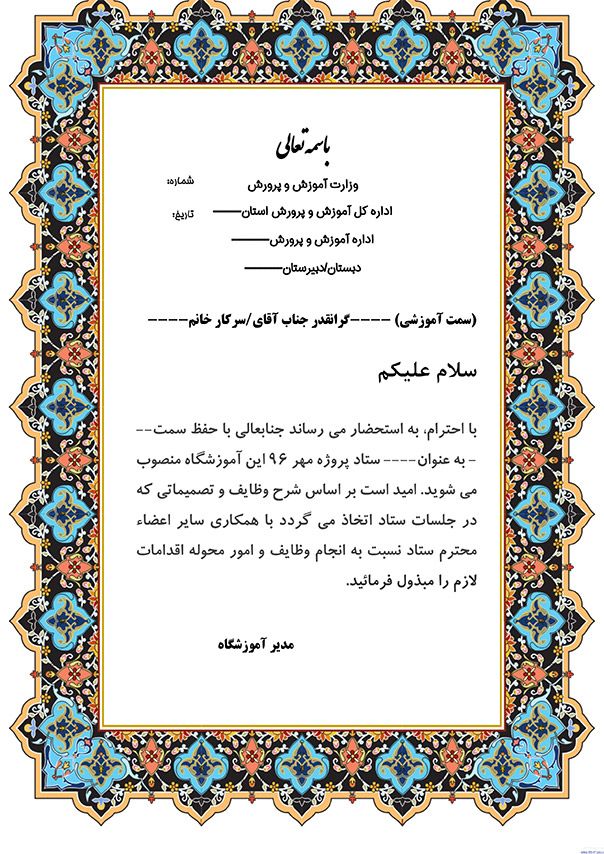 باسمه تعالی
وزارت آموزش و پرورش
شماره:
اداره کل آموزش و پرورش استان——
تاریخ:
اداره آموزش و پرورش———
دبستان/دبیرستان———
(سمت آموزشی) ----گرانقدر جناب آقای/سرکار خانم----
سلام علیکم
با احترام، به استحضار می رساند جنابعالی با حفظ سمت--
- به عنوان---- ستاد پروژه مهر ۹۶ این آموزشگاه منصوب
می شوید. امید است بر اساس شرح وظایف و تصمیماتی که
در جلسات ستاد اتخاذ می گردد با همکاری سایر اعضاء
محترم ستاد نسبت به انجام وظایف و امور محوله اقدامات
لازم را مبذول فرمائید.
مدیر آموزشگاه